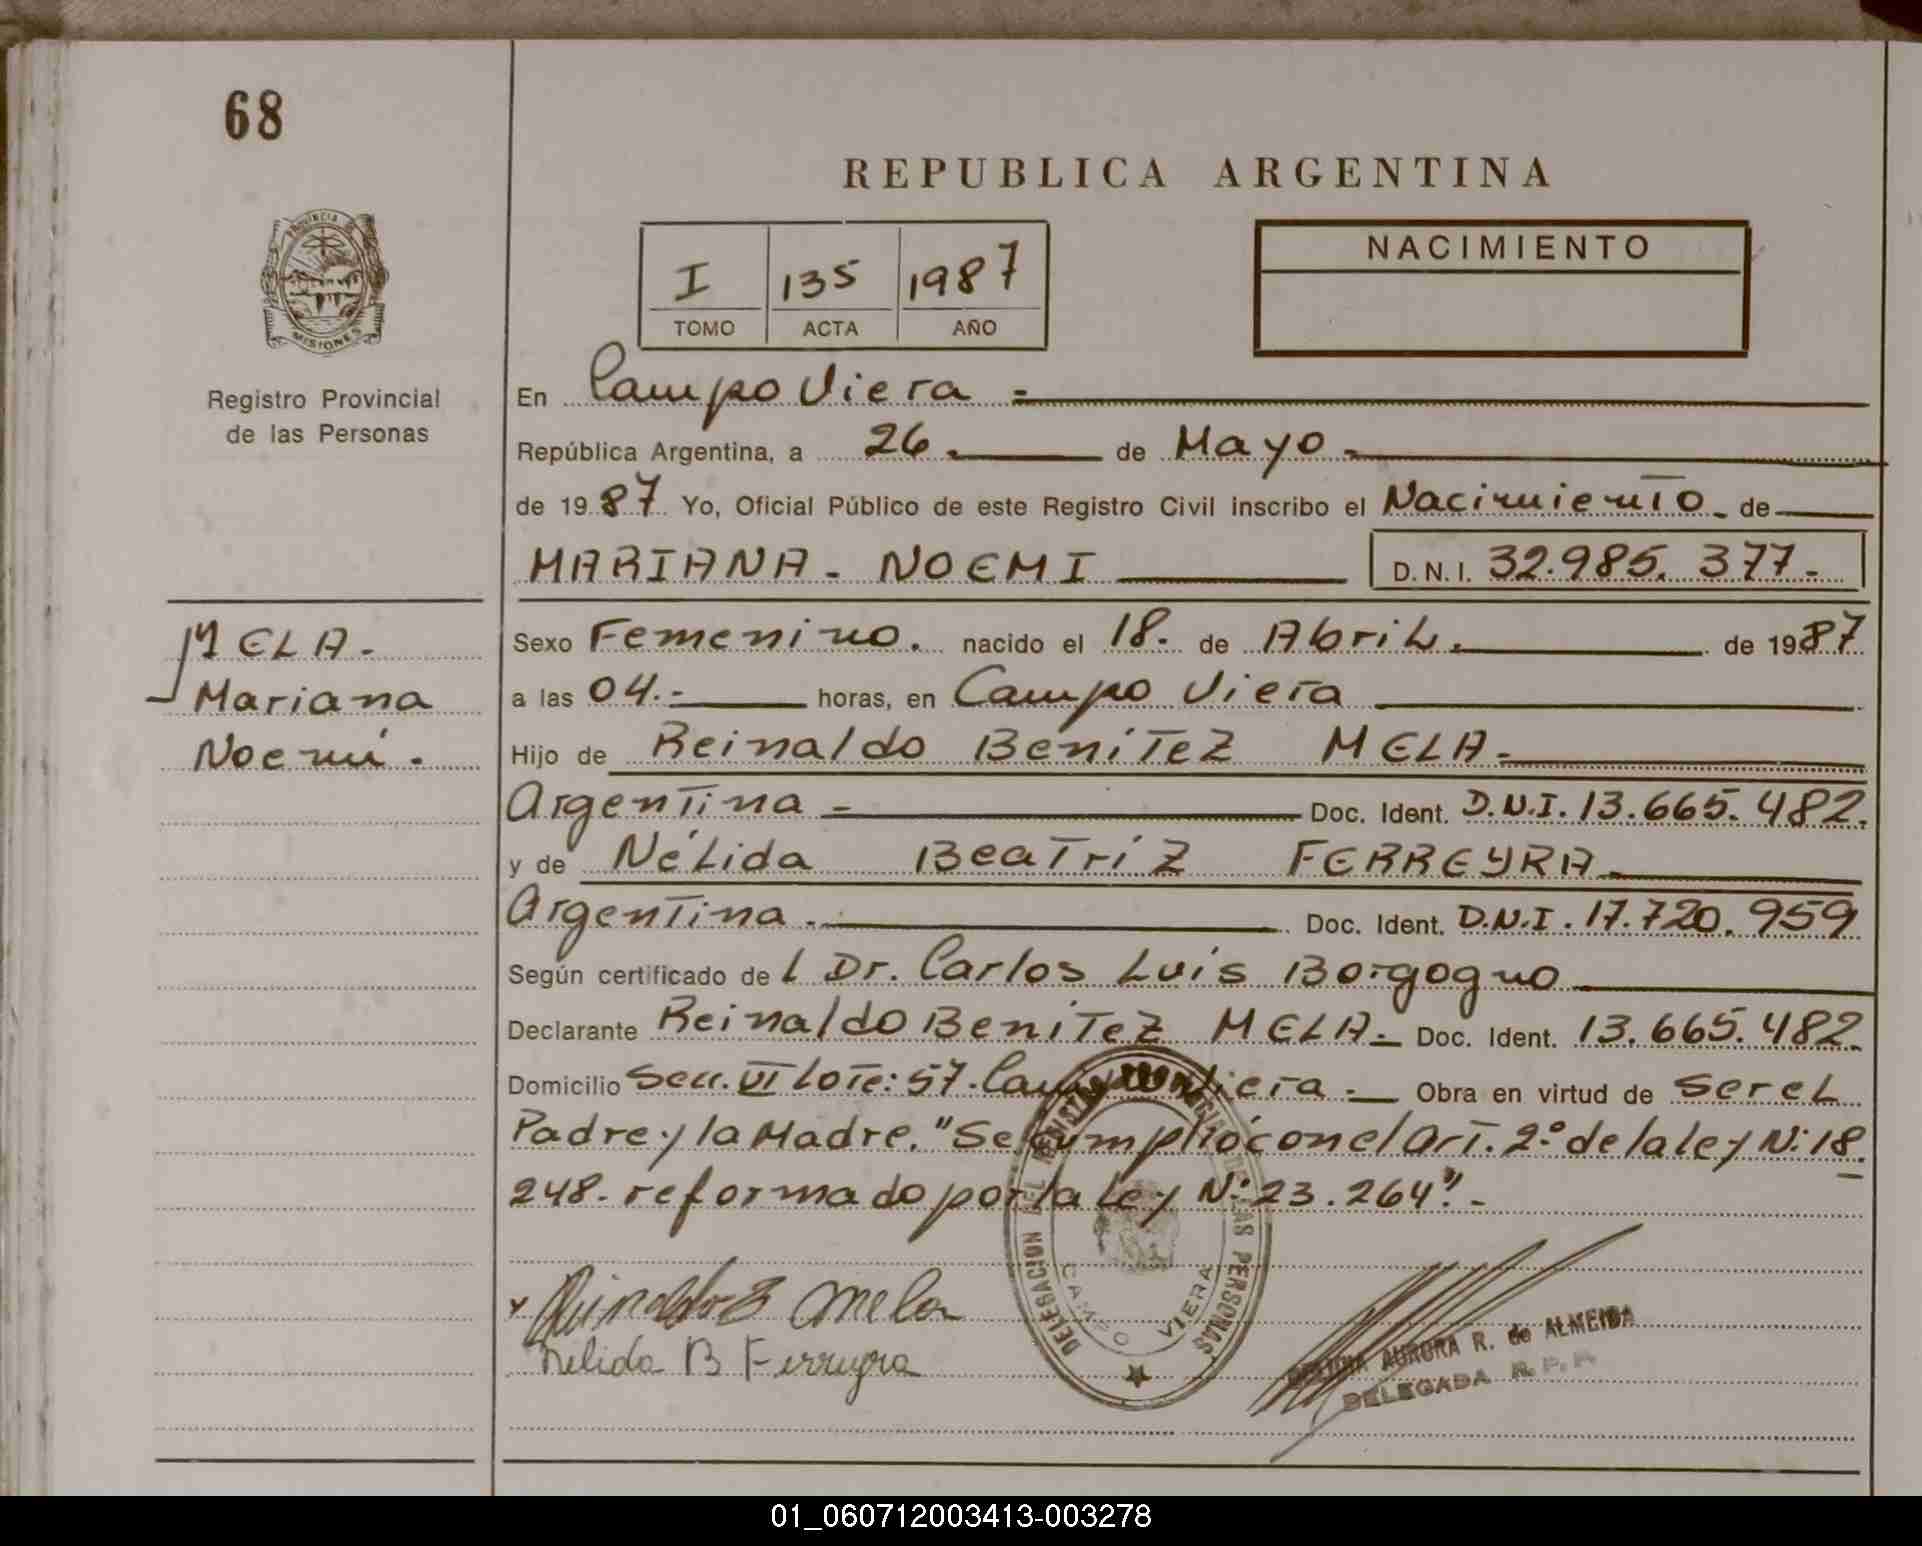 68
REPUBLICA ARGENTINA
PROVINCIA
MISIONES
Registro Provincial
de las Personas
I 135 1987
TOMO ACTA AÑO
NACIMIENTO
En Campo Viera =
República Argentina, a 26. de Mayo.
de 1987 Yo, Oficial Público de este Registro Civil inscribo el Nacimiento de
MARIANA - NOEMI D.N.I. 32.985.377.-
MELA.-
Mariana
Noemí.
Sexo Femenino. nacido el 18. de Abril. de 1987
a las 04.- horas, en Campo Viera
Hijo de Reinaldo Benitez MELA-
Argentina - Doc. Ident. D.N.I. 13.665.482.
y de Nélida Beatriz FERREYRA
Argentina. Doc. Ident. D.N.I. 17.720.959
Según certificado de l Dr. Carlos Luis Borgogno
Declarante Reinaldo Benitez MELA.- Doc. Ident. 13.665.482.
Domicilio Secc. VI Lote: 57. Campo Viera.- Obra en virtud de Ser el
Padre y la Madre. "Se cumplió con el Art. 2º de la ley Nº 18.
248. reformado por la Ley Nº 23.264".-
Reinaldo B Mela
Nelida B Ferreyra
DELEGACION DE LAS PERSONAS
CAMPO VIERA
AURORA R. de ALMEIDA
DELEGADA R. P. P.
01_060712003413-003278